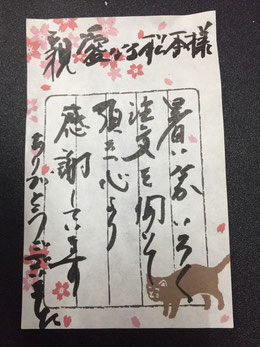 親愛なる松本様
暑い夏いろく
注文を伺いて
頂き心より
感謝しています
ありがとうございました